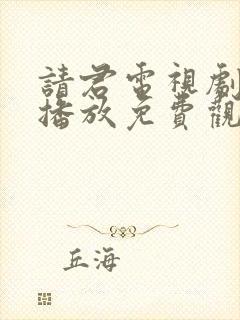 請君電視劇
播放免費觀
丘海